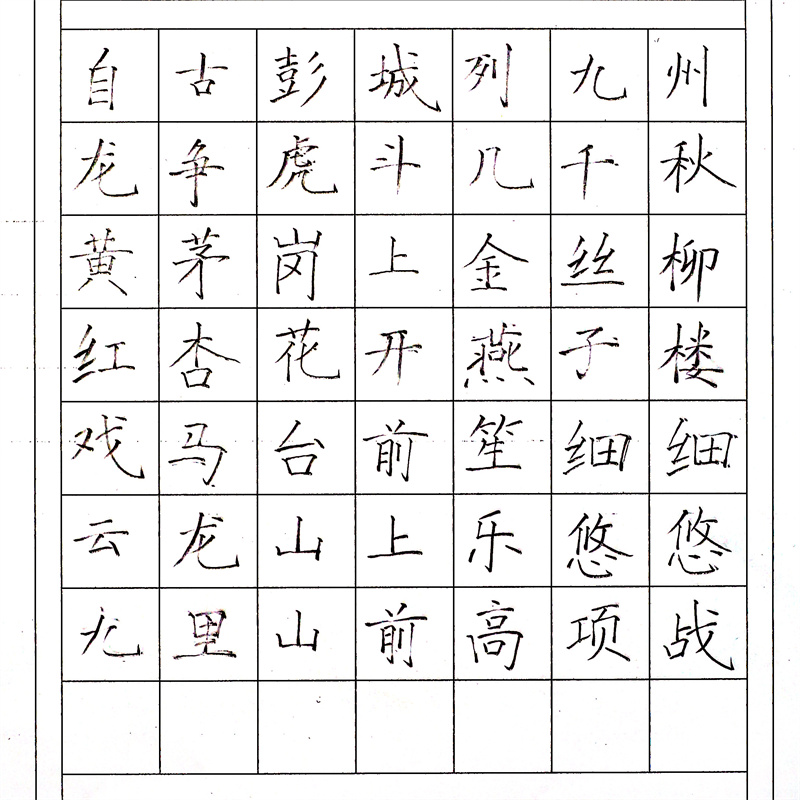 自古彭城列九州
龙争虎斗几千秋
黄茅岗上金丝柳
红杏花开燕子楼
戏马台前笙细细
云龙山上乐悠悠
九里山前高项战